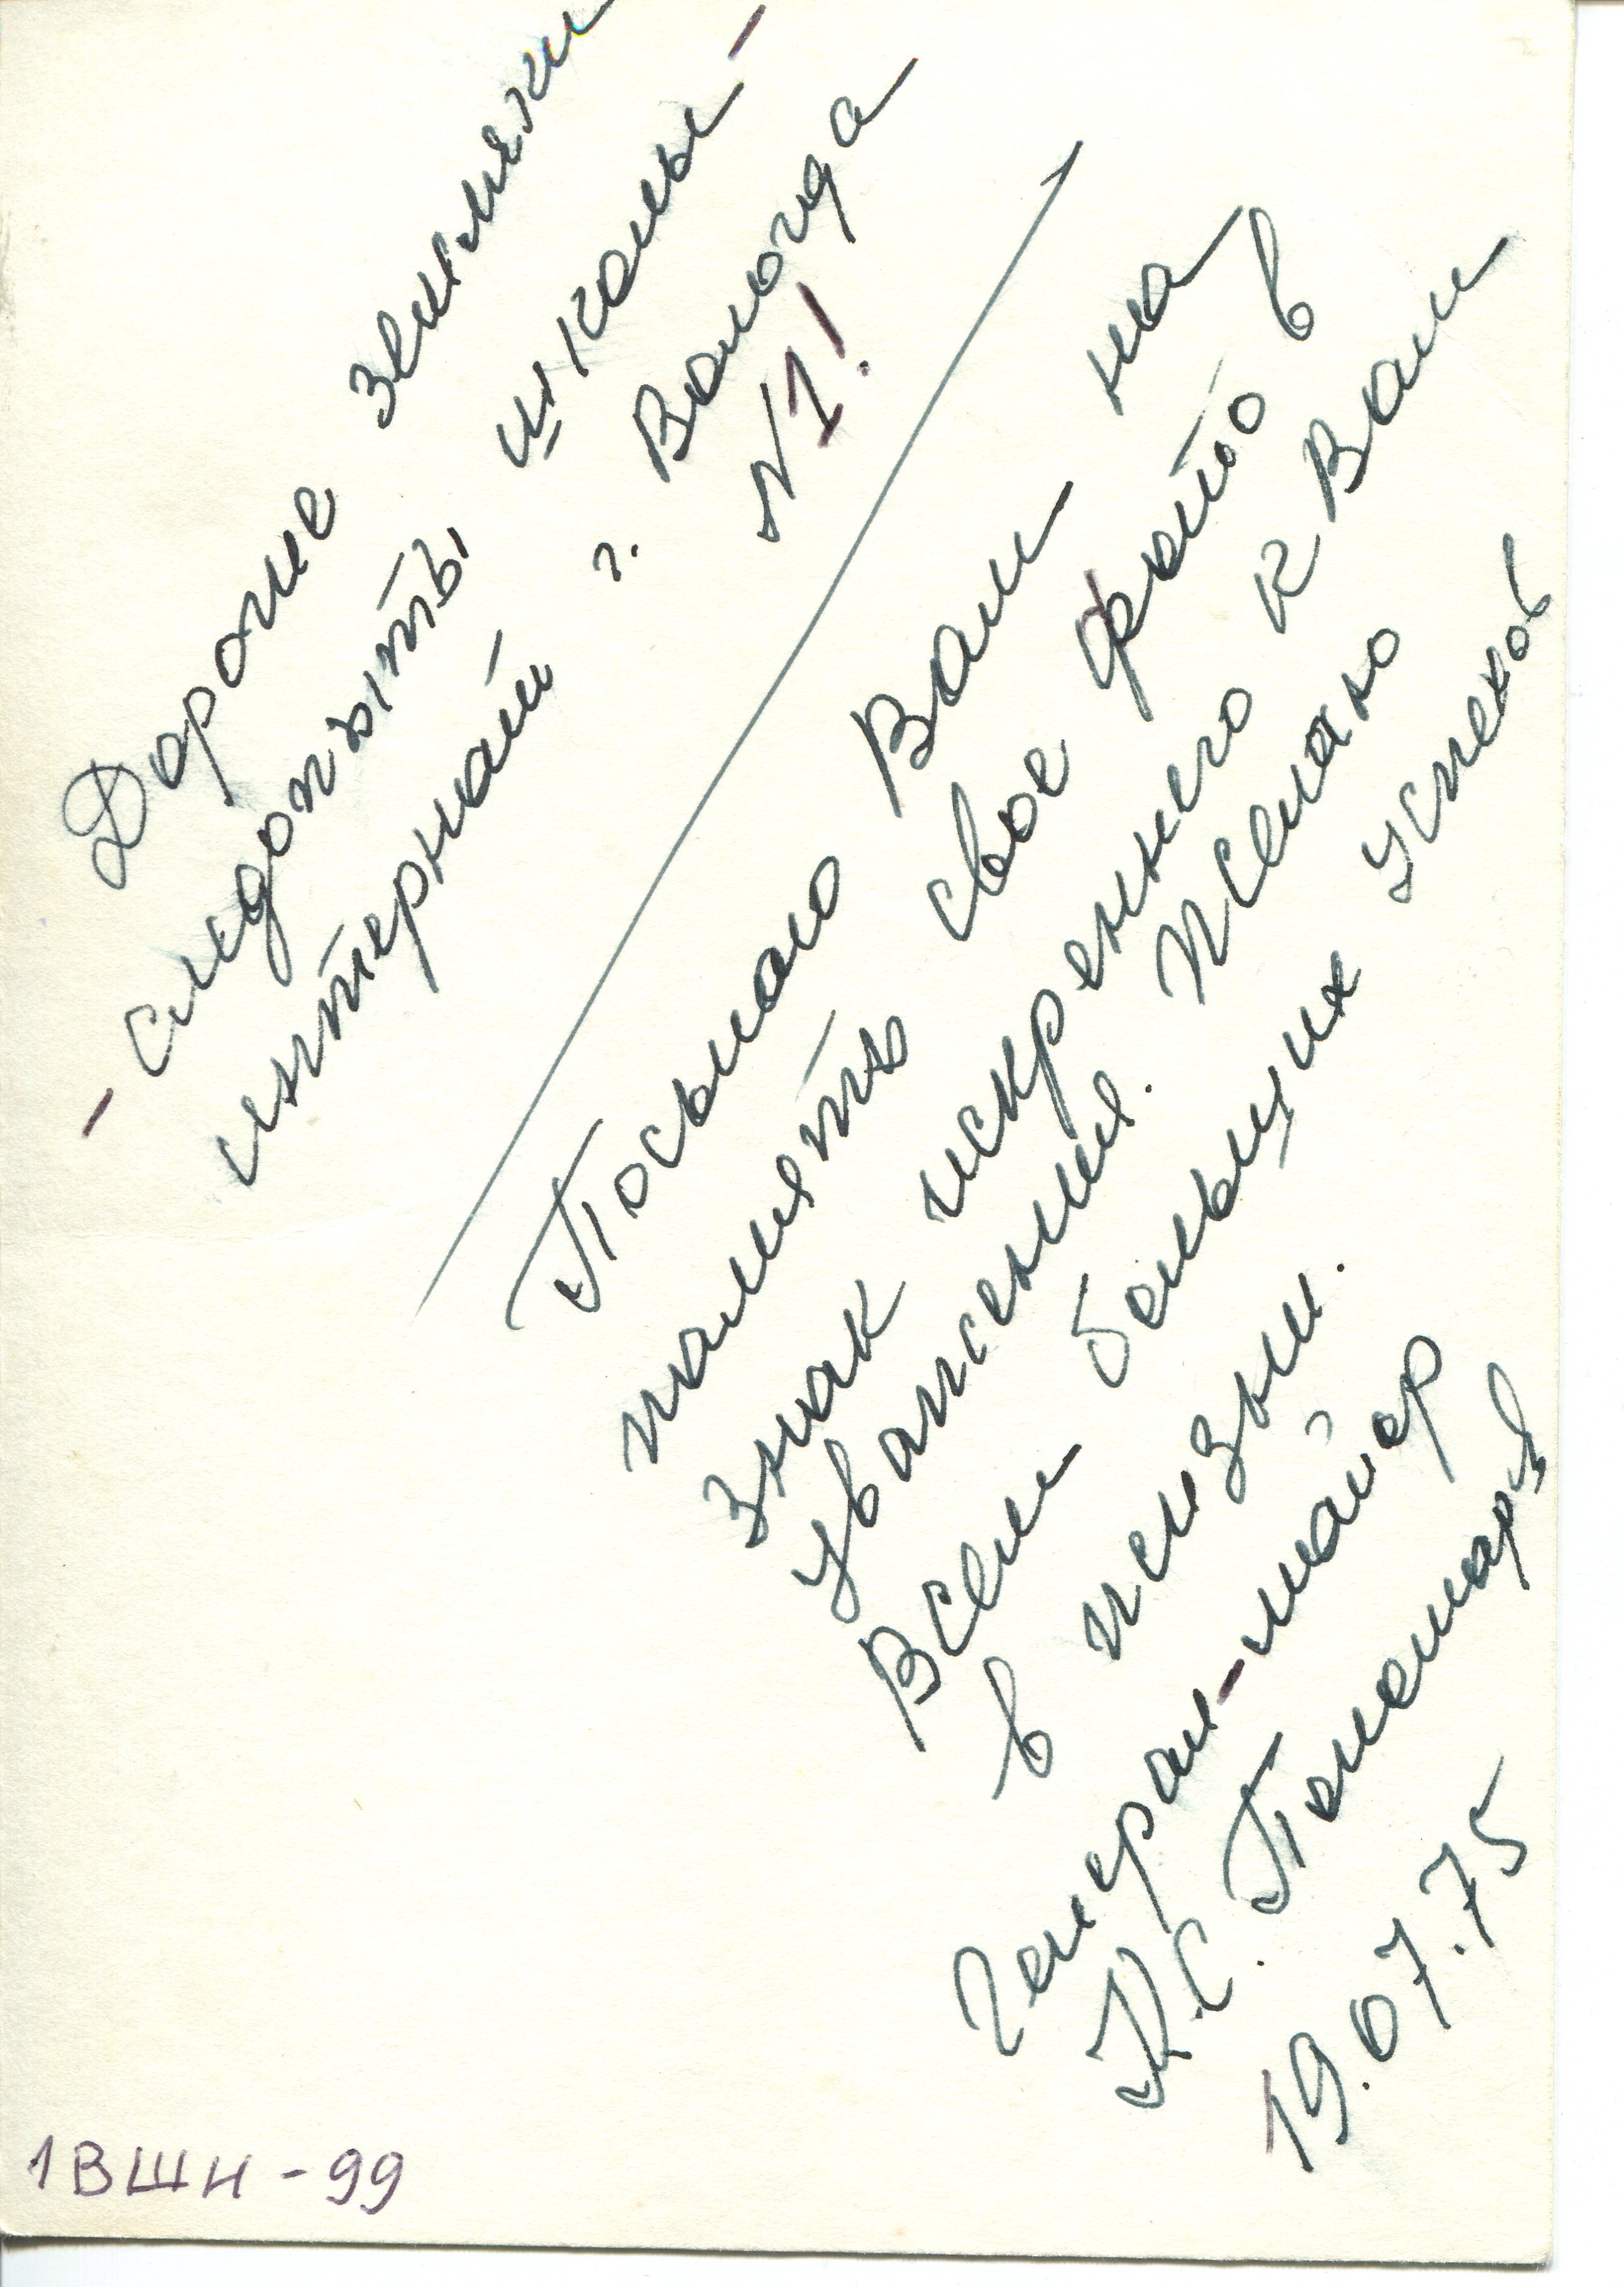 Дорогие земляки
- следопыты школы -
интернат г. Вологда
№1!
Посылаю Вам на
память свое фото в
знак искреннего к Вам
уважения. Желаю
Всем больших успехов
в жизни.
Генерал-майор
19.07.75
1ВШИ-99